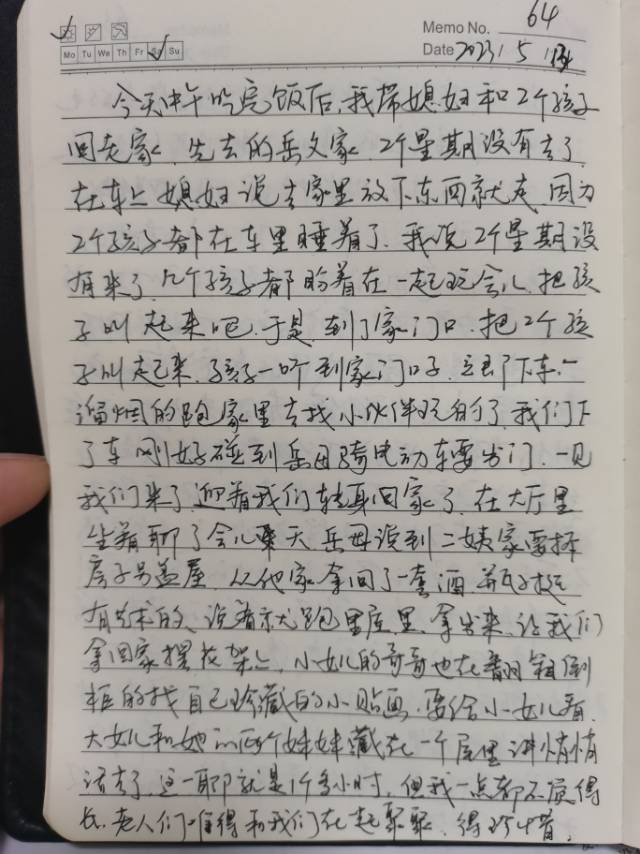 64
Memo No.
Mo Tu We Th Fr Sa Su
Date 2023 / 5 /
今天中午吃完饭后,我带媳妇和2个孩子
回老家,先去的岳父家,2个星期没有去了
在车上媳妇说去家里放下东西就走,因为
2个孩子都在车里睡着了,我说2个星期没
有来了,几个孩子都盼着在一起玩会儿,把孩
子叫起来吧,于是,到了家门口,把2个孩
子叫起来,孩子一听到家门口了,立即下车,一
溜烟的跑家里去找小伙伴玩的了,我们下
了车,刚好碰到岳母骑电动车要出门,一见
我们来了,迎着我们转身回家了,在大厅里
坐着聊了会儿天,岳母说到二姨家要拆
房子另盖屋,从他家拿回了一套酒,瓶子挺
有艺术的,说着就跑里屋里,拿出来,让我们
拿回家摆花架上,小女儿的哥哥也在翻箱倒
柜的找自己珍藏的小贴画,要给小女儿看,
大女儿和她的两个妹妹藏在一个屋里讲悄悄
话去了,这一聊就是1个多小时,但我一点都不觉得
长,老人们难得和我们在一起聚聚,得珍惜,